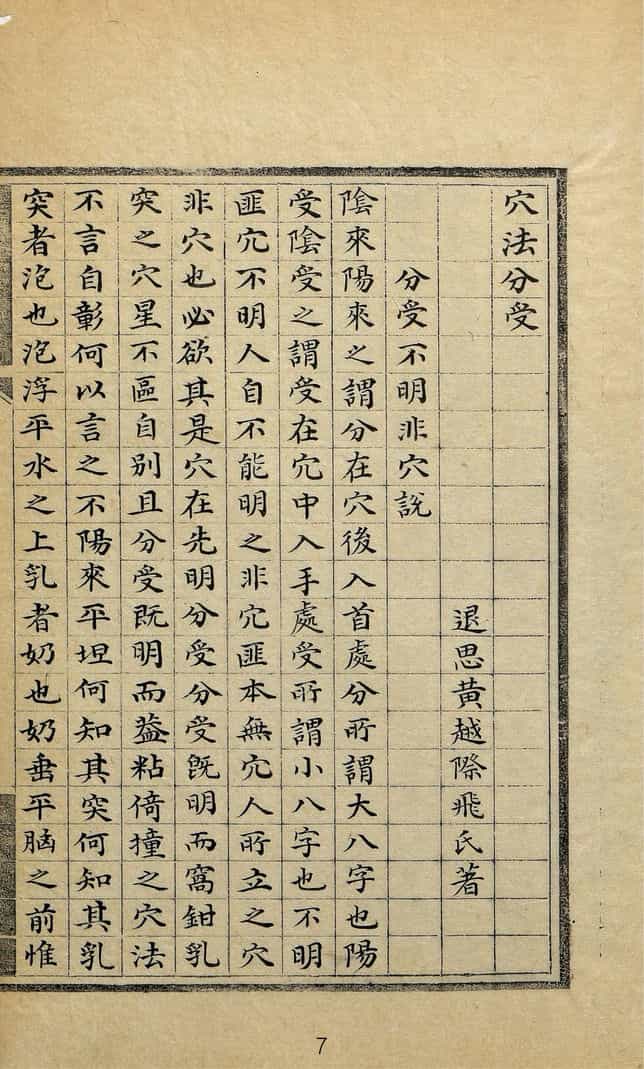 穴法分受
退思黄越際飛氏著
分受不明非穴說
陰來陽來之謂分在穴後入首處分所謂大八字也陽
受陰受之謂受在穴中入手處受所謂小八字也不明
匪穴不明人自不能明之非穴匪本無穴人所立之穴
非穴也必欲其是穴在先明分受分受旣明而窩鉗乳
突之穴星不區自别且分受既明而葢粘倚撞之穴法
不言自彰何以言之不陽來平坦何知其突何知其乳
突者泡也泡浮平水之上乳者奶也奶垂平脑之前惟
7